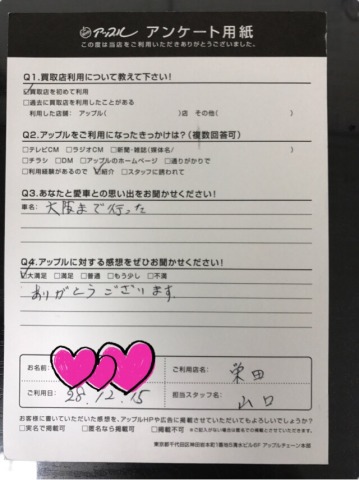 アップル アンケート用紙
この度は当店をご利用いただきありがとうございました。
Q1.買取店利用について教えて下さい!
☑買取店を初めて利用
□過去に買取店を利用したことがある
利用した店舗: アップル( )店 その他( )
Q2.アップルをご利用になったきっかけは?(複数回答可)
□テレビCM □ラジオCM □新聞・雑誌(媒体名/ )
□チラシ □DM □アップルのホームページ □通りがかりで
□利用経験があるので ☑紹介 □スタッフに誘われて
Q3.あなたと愛車との思い出をお聞かせください!
車名: 大阪まで行った
Q4.アップルに対する感想をぜひお聞かせください!
☑大満足 □満足 □普通 □もう少し □不満
ありがとうございます。
お名前
ご利用店名: 栄田
ご利用日: 28.12.15
担当スタッフ名: 山口
お客様に書いていただいた感想を、アップルHPや広告に掲載させていただいてもよろしいでしょうか?
□実名で掲載可 □匿名なら掲載可 □掲載不可 ※ご記入がない場合は匿名での掲載とさせていただきます。
東京都千代田区神田岩本町1番地5清水ビル6F アップルチェーン本部